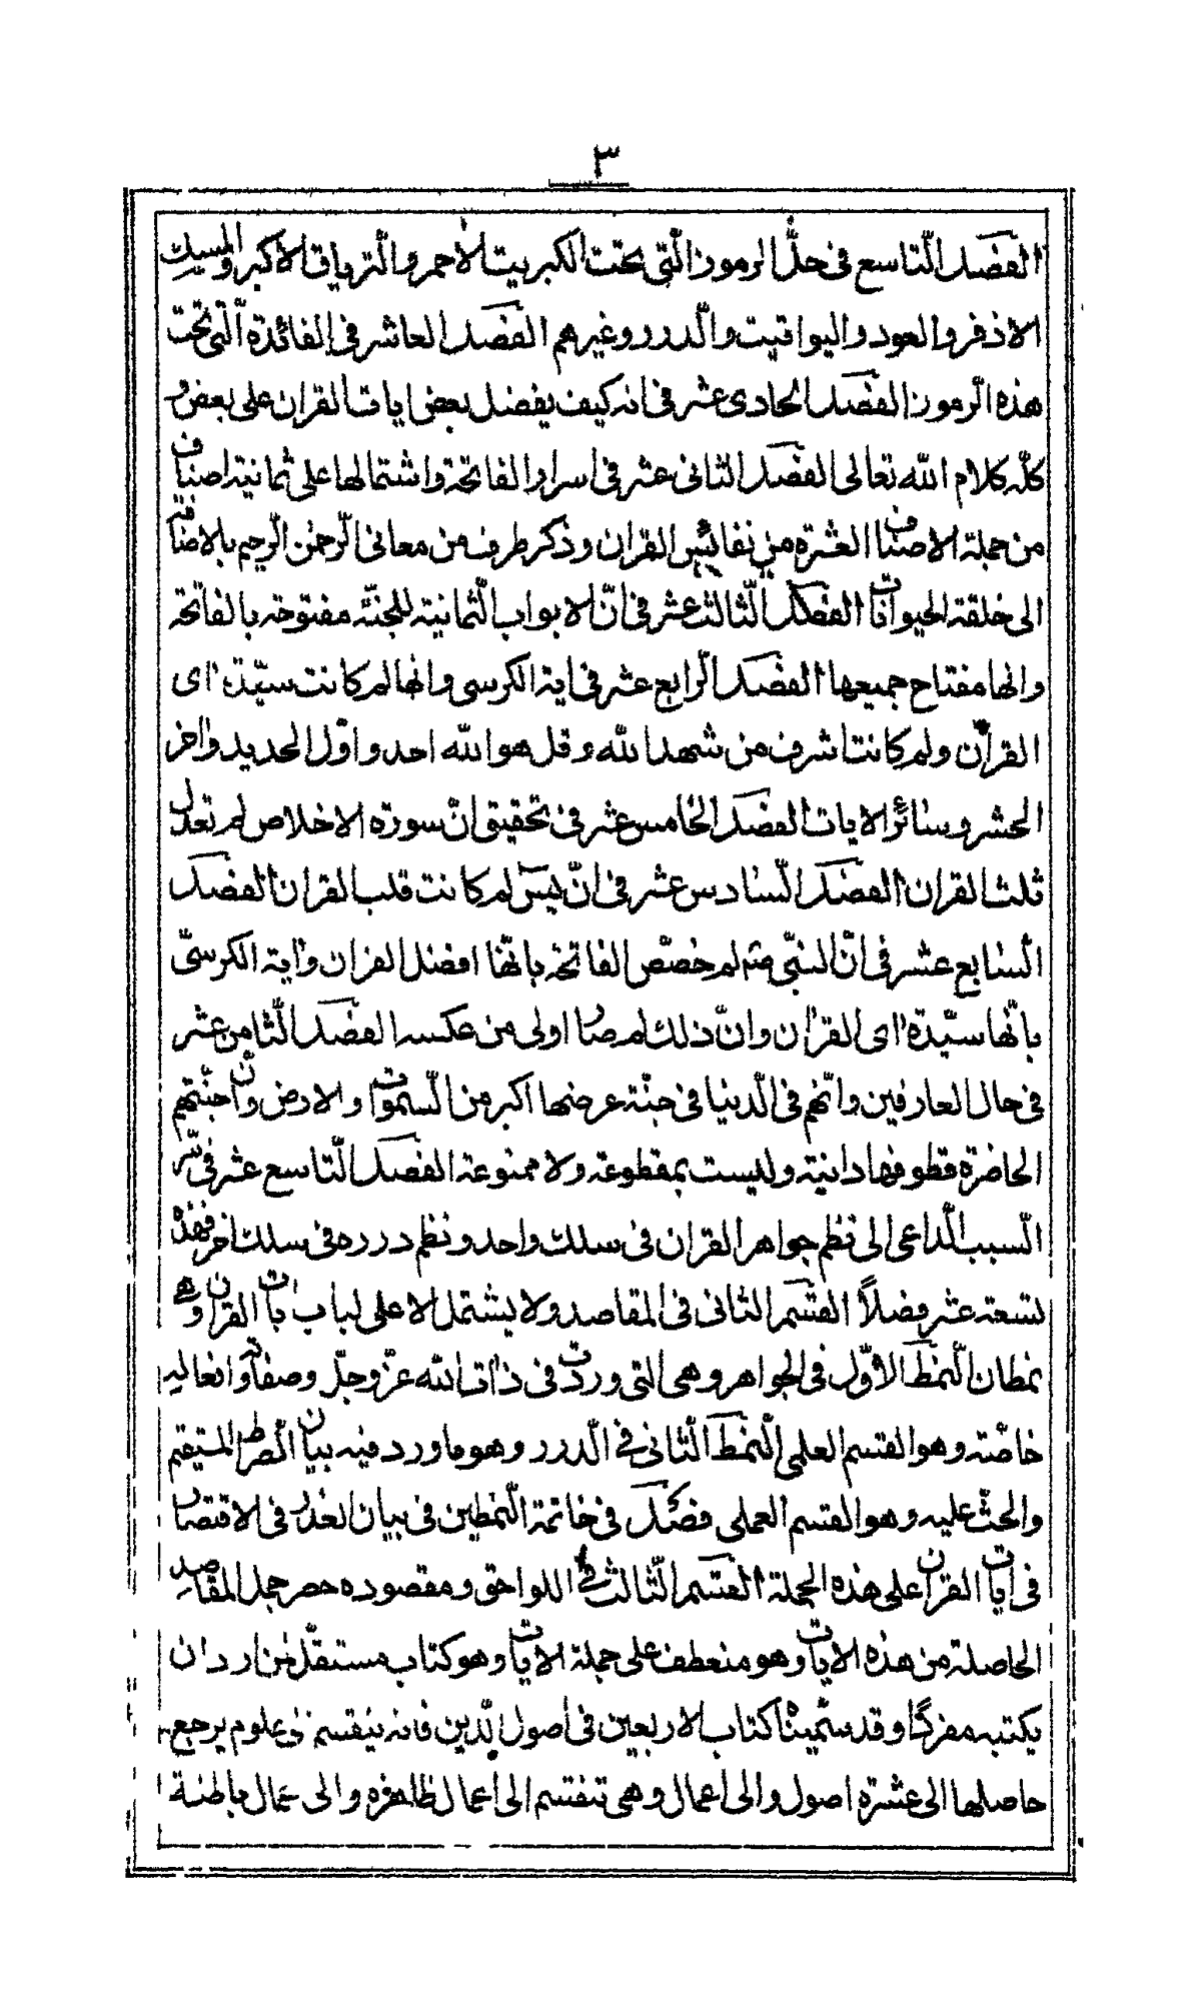 ٣
الفصل التاسع فى حل الرموز التى تحت الكبريت الاحمر والترياق الاكبر والمسك
الاذفر والعود واليواقيت والدرر وغيرهم الفصل العاشر فى الفائدة التى تحت
هذه الرموز الفصل الحادى عشر فى انه كيف يفضل بعض ايات القران على بعض و
كله كلام الله تعالى الفصل الثانى عشر فى اسرار الفاتحة واشتمالها على ثمانية اصناف
من جملة الاصناف العشرة من نفائس القران وذكر طرف من معانى الرحمن الرحيم بالاضافة
الى خلقة الحيوانات الفصل الثالث عشر فى انّ الابواب الثمانية للجنّة مفتوحة بالفاتحة
وانها مفتاح جميعها الفصل الرابع عشر فى اية الكرسى وانها لم كانت سيّدة اى
القرآن ولم كانت اشرف من شهد الله وقل هو الله احد واوّل الحديد واخر
الحشر وسائر الايات الفصل الخامس عشر فى تحقيق انّ سورة الاخلاص لم تعدل
ثلث القران الفصل السادس عشر فى انّ يس لم كانت قلب القران الفصل
السابع عشر فى انّ النبّى صم لم خصّص الفاتحة بانّها افضل القران واية الكرسىّ
بانّها سيّدة اى القران وانّ ذلك لم صار اولى من عكسه الفصل الثامن عشر
فى حال العارفين وانّهم فى الدنيا فى جنّة عرضها اكبر من السموات والارض وان جنّتهم
الحاضرة قطوفها دانية وليست بمقطوعة ولا ممنوعة الفصل التاسع عشر فى سرّ
السبب الداعى الى نظم جواهر القران فى سلك واحد ونظم درره فى سلك اخر فهذه
تسعة عشر فصلاً القسم الثانى فى المقاصد ولا يشتمل الا على لباب ايات القران وهى
نمطان النمط الاوّل فى الجواهر وهى التى وردت فى ذات الله عزّ وجلّ وصفاته وافعاليه
خاصّته وهو القسم العلمى النمط الثانى فى الدرر وهو ما ورد فيه بيان الصراط المستقيم
والحثّ عليه وهو القسم العملى فصل فى خاتمة النمطين فى بيان العذر فى الاقتصار
فى ايات القران على هذه الجملة القسم الثالث فى اللواحق ومقصوده حصر جمل المقاصد
الحاصلة من هذه الايات وهو منعطف على جملة الايات وهو كتاب مستقلّ لمن اراد ان
يكتبه مفردًا وقد سمّيناه كتاب الاربعين فى اصول الدّين فانه ينقسم الى علوم يرجع
حاصلها الى عشرة اصول والى اعمال وهى تنقسم الى اعمال ظاهرة والى اعمال باطنة